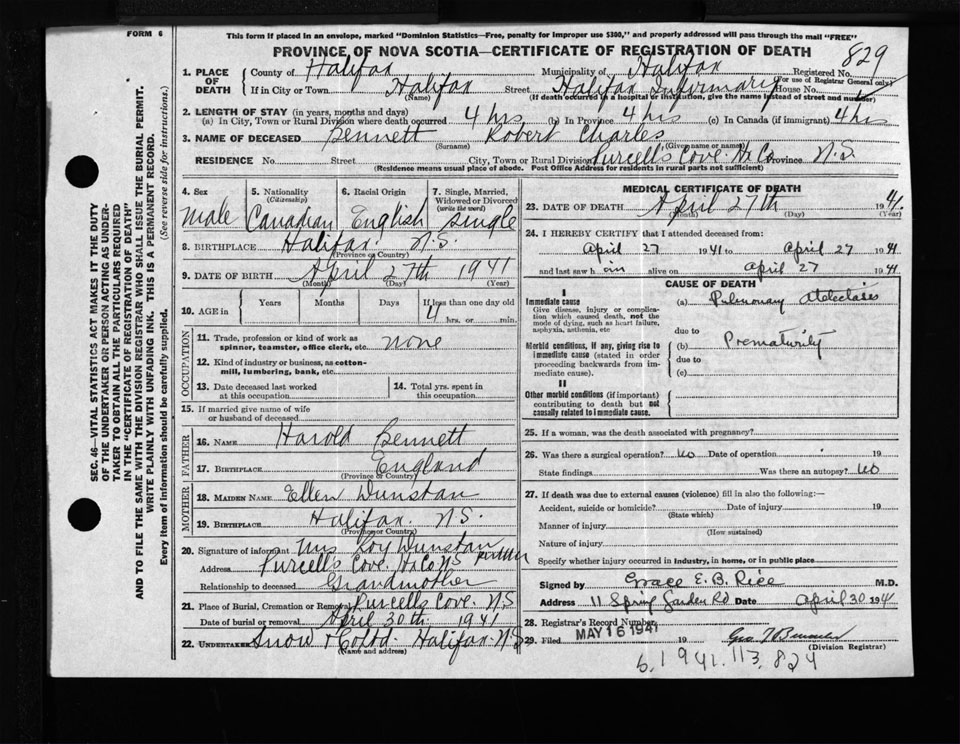 FORM 6
This form if placed in an envelope, marked "Dominion Statistics—Free, penalty for improper use $300," and properly addressed will pass through the mail "FREE"
PROVINCE OF NOVA SCOTIA—CERTIFICATE OF REGISTRATION OF DEATH
829
1. PLACE OF DEATH
County of Halifax Municipality of Halifax Registered No.
(For use of Registrar General only)
If in City or Town Halifax Street Halifax Infirmary House No.
(Name) (If death occurred in a hospital or institution, give the name instead of street and number)
2. LENGTH OF STAY (in years, months and days)
(a) In City, Town or Rural Division where death occurred 4 hrs (b) In Province 4 hrs (c) In Canada (if immigrant) 4 hrs
3. NAME OF DECEASED Bennett Robert Charles
(Surname) (Given name or names)
RESIDENCE No. Street City, Town or Rural Division Purcells Cove Hx Co Province N.S.
(Residence means usual place of abode. Post Office Address for residents in rural parts not sufficient)
4. Sex
male
5. Nationality
(Citizenship)
Canadian
6. Racial Origin
English
7. Single, Married, Widowed or Divorced
(write the word)
single
8. BIRTHPLACE Halifax N.S.
(Province or Country)
9. DATE OF BIRTH April 27th 1941
(Month) (Day) (Year)
10. AGE in Years Months Days If less than one day old
4 hrs. or min.
OCCUPATION
11. Trade, profession or kind of work as spinner, teamster, office clerk, etc. none
12. Kind of industry or business, as cotton-mill, lumbering, bank, etc.
13. Date deceased last worked at this occupation
14. Total yrs. spent in this occupation
15. If married give name of wife or husband of deceased
FATHER
16. NAME Harold Bennett
17. BIRTHPLACE England
(Province or Country)
MOTHER
18. MAIDEN NAME Ellen Dunstan
19. BIRTHPLACE Halifax N.S.
(Province or Country)
20. Signature of informant Mrs Roy Dunstan
Address Purcells Cove Hx Co NS
Relationship to deceased Grandmother
21. Place of Burial, Cremation or Removal Purcells Cove NS
Date of burial or removal April 30th 1941
22. UNDERTAKER Snow & Co Ltd. Halifax N.S
(Name and address)
MEDICAL CERTIFICATE OF DEATH
23. DATE OF DEATH April 27th 1941
(Month) (Day) (Year)
24. I HEREBY CERTIFY that I attended deceased from:
April 27 1941 to April 27 1941
and last saw h im alive on April 27 1941
CAUSE OF DEATH
I
Immediate cause
Give disease, injury or complication which caused death, not the mode of dying, such as heart failure, asphyxia, asthenia, etc
(a) Pulmonary Atelectasis
due to
Morbid conditions, if any, giving rise to immediate cause (stated in order proceeding backwards from immediate cause).
(b) Prematurity
due to
(c)
II
Other morbid conditions (if important) contributing to death but not causally related to immediate cause.
25. If a woman, was the death associated with pregnancy?
26. Was there a surgical operation? no Date of operation 19
State findings Was there an autopsy? no
27. If death was due to external causes (violence) fill in also the following:—
Accident, suicide or homicide? Date of injury 19
(State which)
Manner of injury
(How sustained)
Nature of injury
Specify whether injury occurred in industry, in home, or in public place
Signed by Grace E. B. Rice M.D.
Address 11 Spring Garden Rd Date April 30 1941
28. Registrar's Record Number
29. Filed MAY 16 1941 19
(Division Registrar)
6.1941.113.824
SEC. 46—VITAL STATISTICS ACT MAKES IT THE DUTY
OF THE UNDERTAKER OR PERSON ACTING AS UNDER-
TAKER TO OBTAIN ALL THE PARTICULARS REQUIRED
IN THE "CERTIFICATE OF REGISTRATION OF DEATH"
AND TO FILE THE SAME WITH THE DIVISION REGISTRAR WHO SHALL ISSUE THE BURIAL PERMIT.
WRITE PLAINLY WITH UNFADING INK. THIS IS A PERMANENT RECORD.
Every item of information should be carefully supplied. (See reverse side for instructions.)